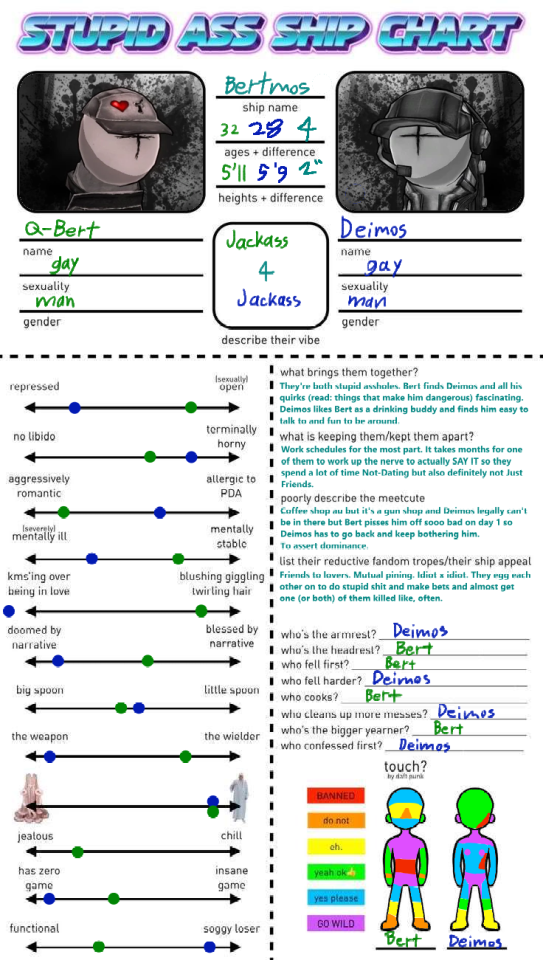 STUPID ASS SHIP CHART
Bertmos
ship name
32 28 4
ages + difference
5'11 5'9 2"
heights + difference
Q-Bert
name
gay
sexuality
man
gender
Jackass
4
Jackass
describe their vibe
Deimos
name
gay
sexuality
man
gender
repressed
(sexually)
open
no libido
terminally
horny
aggressively
romantic
allergic to
PDA
(severely)
mentally ill
mentally
stable
kms'ing over
being in love
blushing giggling
twirling hair
doomed by
narrative
blessed by
narrative
big spoon
little spoon
the weapon
the wielder
jealous
chill
has zero
game
insane
game
functional
soggy loser
what brings them together?
They're both stupid assholes. Bert finds Deimos and all his
quirks (read: things that make him dangerous) fascinating.
Deimos likes Bert as a drinking buddy and finds him easy to
talk to and fun to be around.
what is keeping them/kept them apart?
Work schedules for the most part. It takes months for one
of them to work up the nerve to actually SAY IT so they
spend a lot of time Not-Dating but also definitely not Just
Friends.
poorly describe the meetcute
Coffee shop au but it's a gun shop and Deimos legally can't
be in there but Bert pisses him off sooo bad on day 1 so
Deimos has to go back and keep bothering him.
To assert dominance.
list their reductive fandom tropes/their ship appeal
Friends to lovers. Mutual pining. Idiot x idiot. They egg each
other on to do stupid shit and make bets and almost get
one (or both) of them killed like, often.
who's the armrest? Deimos
who's the headrest? Bert
who fell first? Bert
who fell harder? Deimos
who cooks? Bert
who cleans up more messes? Deimos
who's the bigger yearner? Bert
who confessed first? Deimos
touch?
by daft punk
BANNED
do not
eh.
yeah ok👍
yes please
GO WILD
Bert
Deimos